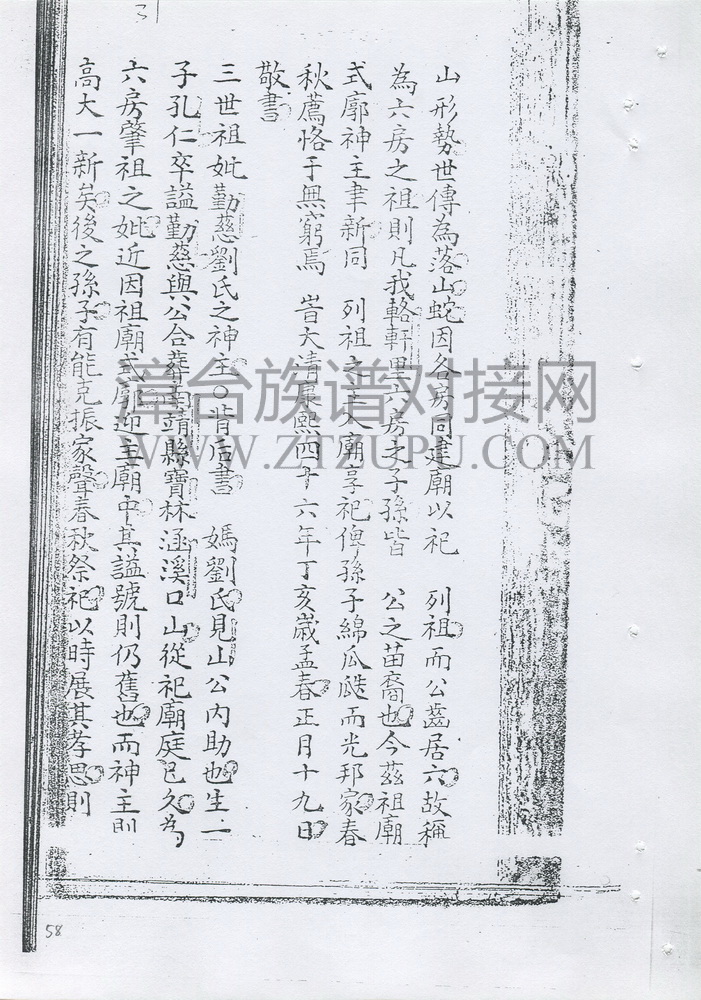 山形勢世傳為落山蛇因各房同建廟以祀　列祖而公齒居六故稱
為六房之祖則凡我輅軒里六房之子孫皆　公之苗裔也今茲祖廟
式廓神主聿新同　列祖之主入廟享祀俾孫子綿瓜瓞而光邦家春
秋薦恪于無窮焉　旹大清康熙四十六年丁亥歲孟春正月十九日
敬書
三世祖妣勤慈劉氏之神主○背后書　媽劉氏見山公內助也生一
子孔仁卒謚勤慈與公合葬南靖縣寶林涵溪口山從祀廟庭已久為
六房肇祖之妣近因祖廟式廓迎主廟中其謚號則仍舊也而神主則
高大一新矣後之孫子有能克振家聲春秋祭祀以時展其孝思則
漳台族谱对接网
WWW.ZTZUPU.COM
58